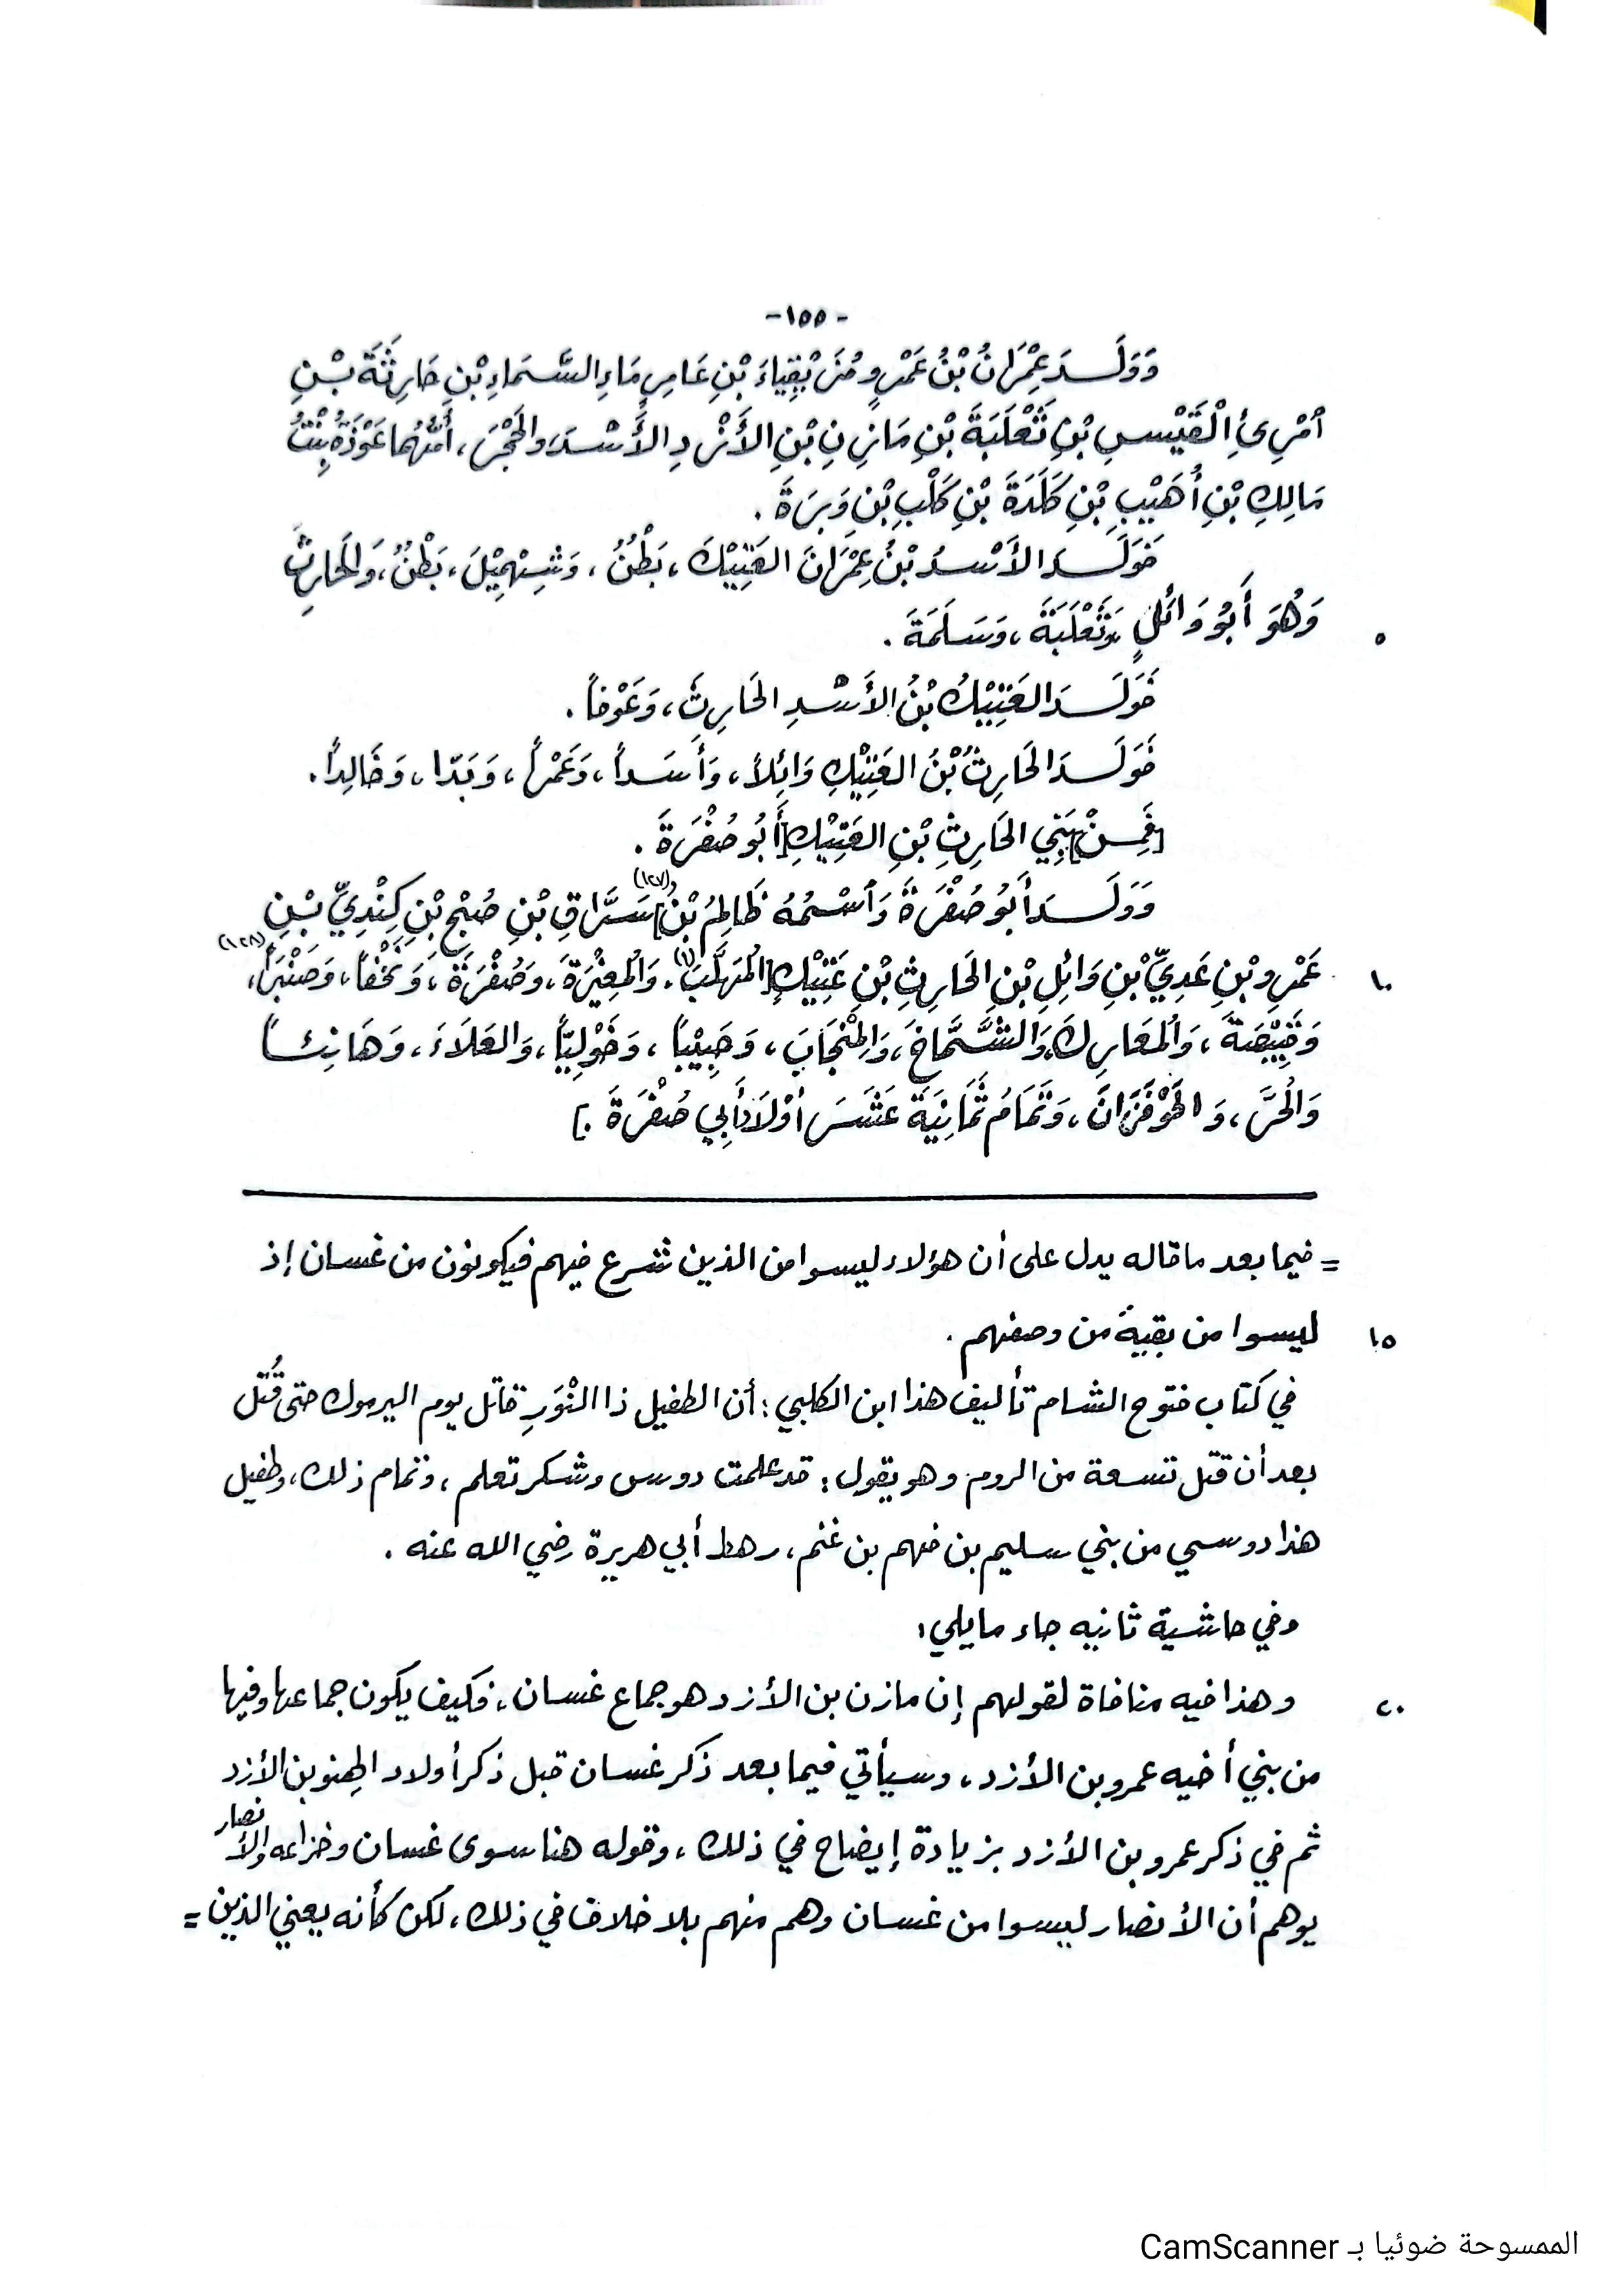 -١٥٥-
وَوَلَــدَ عِمْرَانُ بْنُ عَمْرٍو مُزَيْقِيَاءَ بْنِ عَامِرٍ مَاءِ السَّمَاءِ بْنِ حَارِثَةَ بْـنِ
ٱمْرِئِ الْقَيْسِ بْنِ ثَعْلَبَةَ بْنِ مَازِنِ بْنِ الأَزْدِ الأَسْدَ، والحَجْرَ، أُمُّهُما عَوْذَةُ بِنْتُ
مَالِكِ بْنِ أُهَيْبِ بْنِ كَلَدَةَ بْنِ كَلْبِ بْنِ وَبَرَةَ .
فَوَلَــدَ الأَسْدُ بْنُ عِمْرَانَ العَتِيْكَ، بَطْنٌ، وَشِهْمِيْلَ، بَطْنٌ، وَالحَارِثَ
٥ وَهُوَ أَبُو وَائِلٍ، وَثَعْلَبَةَ، وَسَلَمَةَ .
فَوَلَــدَ العَتِيْكُ بْنُ الأَسْدِ الحَارِثَ، وَعَوْفاً .
فَوَلَــدَ الحَارِثُ بْنُ العَتِيْكِ وَائِلاً، وَأَسَداً، وَعَمْراً، وَبَدّا، وَخَالِداً .
[فَمِـنْ] بَنِي الحَارِثِ بْنِ العَتِيْكِ [أَبُو صُفْرَةَ .
وَوَلَــدَ أَبُو صُفْرَةَ وَٱسْمُهُ ظَالِمُ بْنُ] سَرَّاقِ (١٢٧) بْنِ صُبْحِ بْنِ كِنْدِيِّ بْـنِ
١٠ عَمْرِو بْنِ عَدِيِّ بْنِ وَائِلِ بْنِ الحَارِثِ بْنِ عَتِيْكِ [المُهَلَّبَ (١)، وَالْمُغِيْرَةَ، وَصُفْرَةَ، وَنَخْفاً، وَصَنْبَراً (١٢٨)،
وَقَبِيْصَةَ، وَالْمُعَارِكَ، وَالشَّمَّاخَ، وَالْمِنْجَابَ، وَحَبِيْباً، وَخَوْلِيّاً، وَالعَلَاءَ، وَهَانِئـاً
وَالْحُرَّ، وَالحَوْفَزَانَ، وَتَمَامُ ثَمَانِيَةَ عَشَـرَ أَوْلَادُ أَبِي صُفْرَةَ .]
= فيما بعد ما قاله يدل على أن هؤلاء ليسوا من الذين شرع فيهم فيكونون من غسان إذ
١٥ ليسوا من بقية من وصفهم .
في كتاب فتوح الشام تأليف هذا ابن الكلبي : أن الطفيل ذا النّورِ قاتل يوم اليرموك حتى قُتل
بعد أن قتل تسعة من الروم وهو يقول : قد علمت دوس وشكر تعلم ، وتمام ذلك، وطفيل
هذا دوسي من بني سليم بن فهم بن غنم، رهط أبي هريرة رضي الله عنه .
وفي حاشية ثانيه جاء مايلي :
٢٠ وهذا فيه منافاة لقولهم إن مازن بن الأزد هو جماع غسان، فكيف يكون جماعها وفيها
من بني أخيه عمرو بن الأزد، وسيأتي فيما بعد ذكر غسان قبل ذكر أولاد الهِنو بن الأزد
ثم في ذكر عمرو بن الأزد بزيادة إيضاح في ذلك ، وقوله هنا سوى غسان وخزاعه والأنصار
يوهم أن الأنصار ليسوا من غسان وهم منهم بلا خلاف في ذلك ، لكن كأنه يعني الذين =
الممسوحة ضوئيا بـ CamScanner